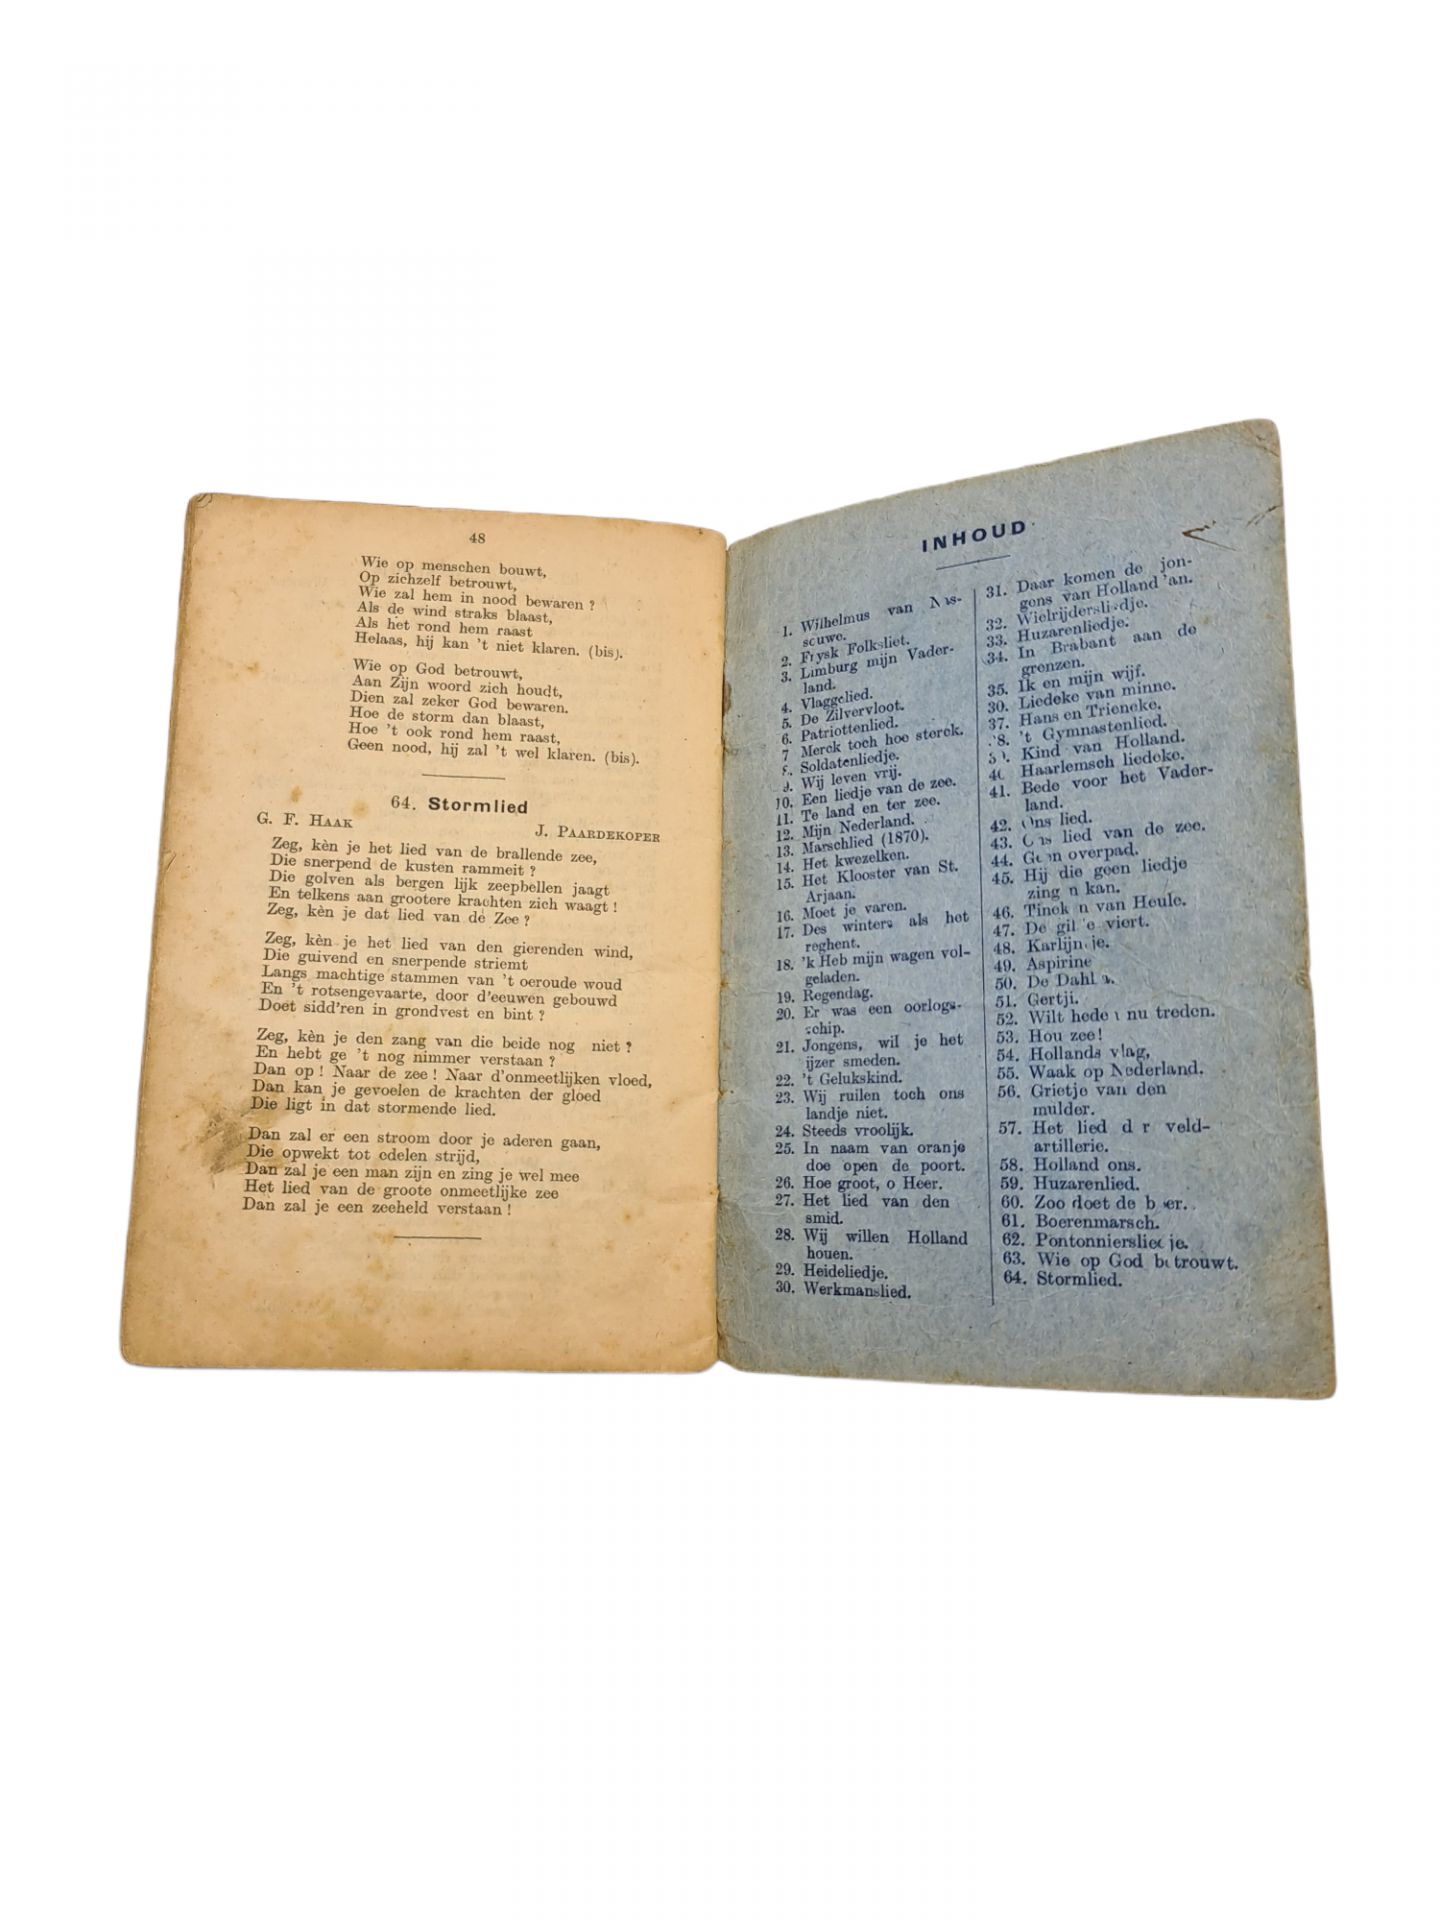 48
Wie op menschen bouwt,
Op zichzelf betrouwt,
Wie zal hem in nood bewaren ?
Als de wind straks blaast,
Als het rond hem raast
Helaas, hij kan 't niet klaren. (bis).
Wie op God betrouwt,
Aan Zijn woord zich houdt,
Dien zal zeker God bewaren.
Hoe de storm dan blaast,
Hoe 't ook rond hem raast,
Geen nood, hij zal 't wel klaren. (bis).
64. Stormlied
G. F. HAAK
J. PAARDEKOPER
Zeg, kèn je het lied van de brallende zee,
Die snerpend de kusten rammeit ?
Die golven als bergen lijk zeepbellen jaagt
En telkens aan grootere krachten zich waagt !
Zeg, kèn je dat lied van de Zee ?
Zeg, kèn je het lied van den gierenden wind,
Die guivend en snerpende striemt
Langs machtige stammen van 't oeroude woud
En 't rotsengevaarte, door d'eeuwen gebouwd
Doet sidd'ren in grondvest en bint ?
Zeg, kèn je den zang van die beide nog niet ?
En hebt ge 't nog nimmer verstaan ?
Dan op ! Naar de zee ! Naar d'onmeetlijken vloed,
Dan kan je gevoelen de krachten der gloed
Die ligt in dat stormende lied.
Dan zal er een stroom door je aderen gaan,
Die opwekt tot edelen strijd,
Dan zal je een man zijn en zing je wel mee
Het lied van de groote onmeetlijke zee
Dan zal je een zeeheld verstaan !
INHOUD
1. Wilhelmus van Nas-
souwe.
2. Frysk Folksliet.
3. Limburg mijn Vader-
land.
4. Vlaggelied.
5. De Zilvervloot.
6. Patriottenlied.
7 Merck toch hoe sterck.
8. Soldatenliedje.
9. Wij leven vrij.
10. Een liedje van de zee.
11. Te land en ter zee.
12. Mijn Nederland.
13. Marschlied (1870).
14. Het kwezelken.
15. Het Klooster van St.
Arjaan.
16. Moet je varen.
17. Des winters als het
reghent.
18. 'k Heb mijn wagen vol-
geladen.
19. Regendag.
20. Er was een oorlogs-
schip.
21. Jongens, wil je het
ijzer smeden.
22. 't Gelukskind.
23. Wij ruilen toch ons
landje niet.
24. Steeds vroolijk.
25. In naam van oranje
doe open de poort.
26. Hoe groot, o Heer.
27. Het lied van den
smid.
28. Wij willen Holland
houen.
29. Heideliedje.
30. Werkmanslied.
31. Daar komen de jon-
gens van Holland 'an.
32. Wielrijdersliedje.
33. Huzarenliedje.
34. In Brabant aan de
grenzen.
35. Ik en mijn wijf.
30. Liedeke van minne.
37. Hans en Trieneke.
38. 't Gymnastenlied.
39. Kind van Holland.
40 Haarlemsch liedeke.
41. Bede voor het Vader-
land.
42. Ons lied.
43. Ons lied van de zee.
44. Geen overpad.
45. Hij die geen liedje
zingen kan.
46. Tineken van Heule.
47. De gilde viert.
48. Karlijntje.
49. Aspirine
50. De Dahlia.
51. Gertji.
52. Wilt heden nu treden.
53. Hou zee!
54. Hollands vlag,
55. Waak op Nederland.
56. Grietje van den
mulder.
57. Het lied der veld-
artillerie.
58. Holland ons.
59. Huzarenlied.
60. Zoo doet de boer.
61. Boerenmarsch.
62. Pontonniersliedje.
63. Wie op God betrouwt.
64. Stormlied.